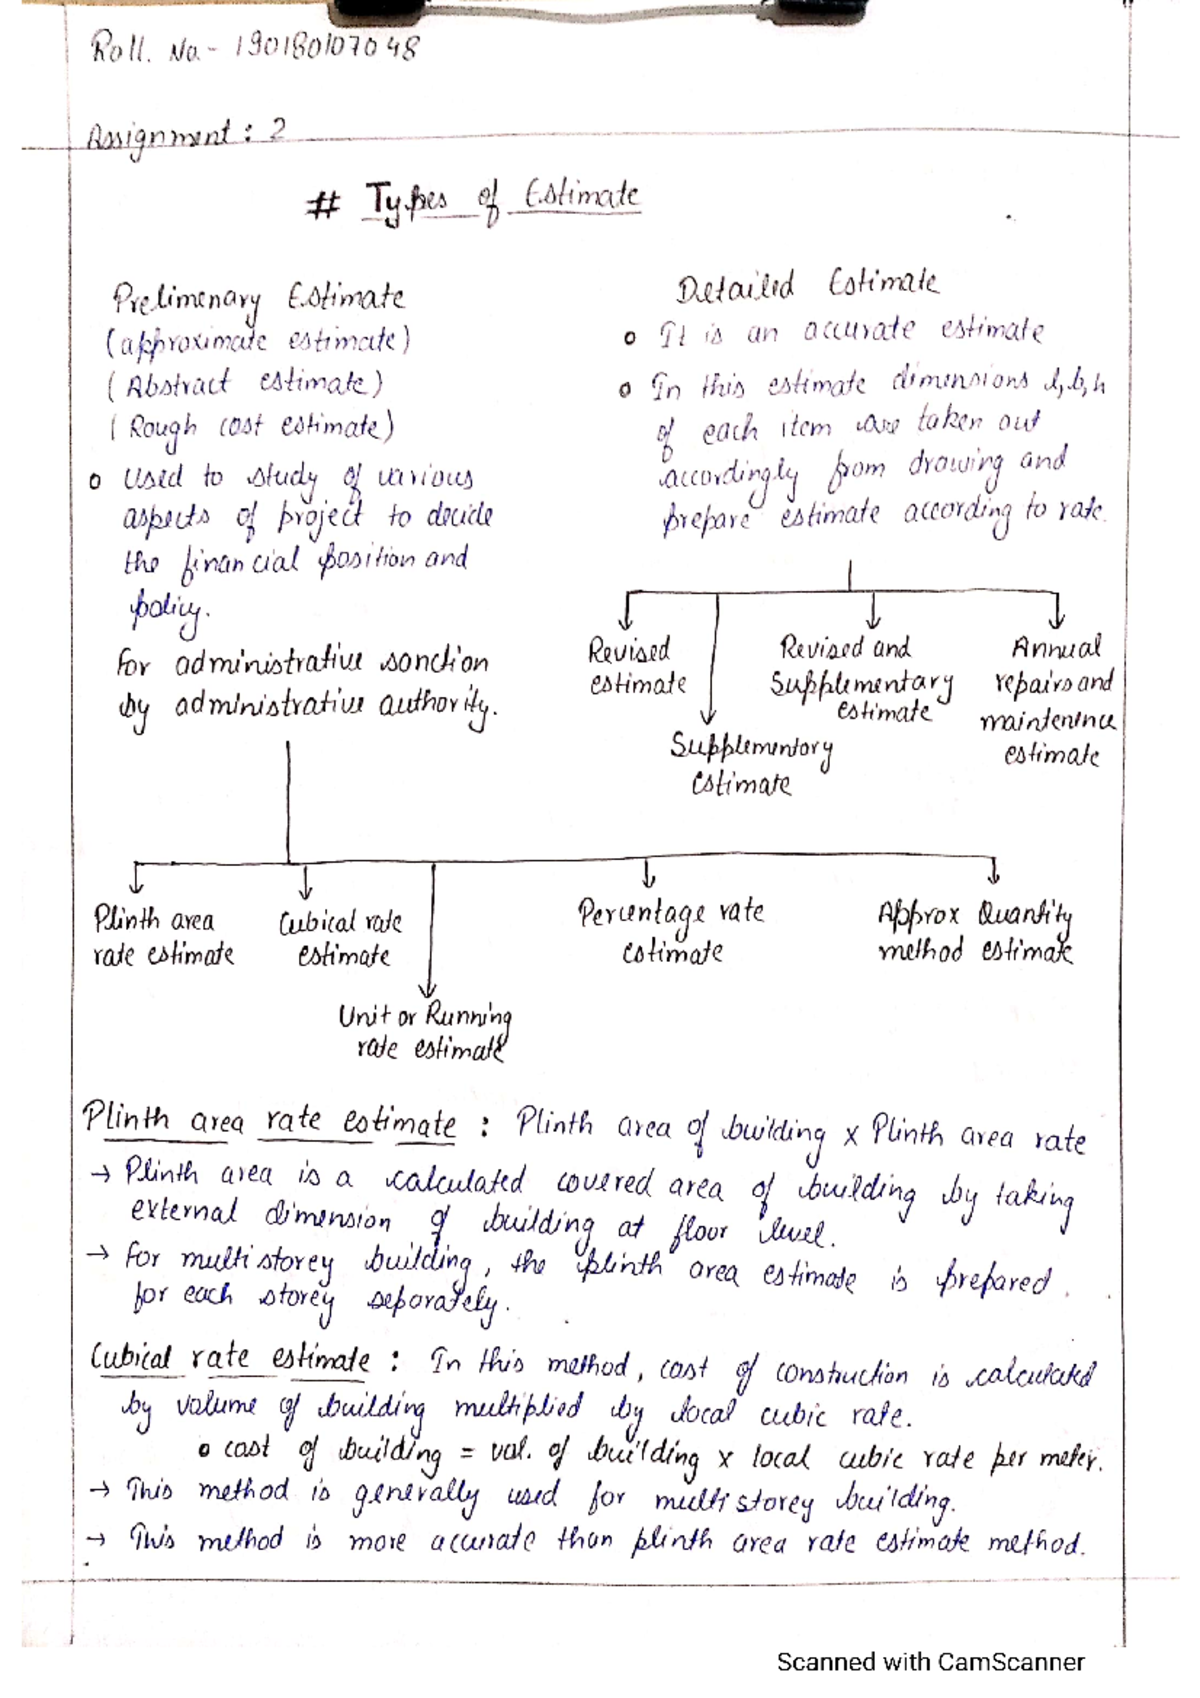 Roll. No.- 190180107048
Assignment : 2
# Types of Estimate
Prelimenary Estimate
(approximate estimate)
(Abstract estimate)
(Rough cost estimate)
o Used to study of various
aspects of project to decide
the financial position and
policy.
for administrative sanction
by administrative authority.
Detailed Estimate
o It is an accurate estimate
o In this estimate dimensions l,b,h
of each item are taken out
accordingly from drawing and
prepare estimate according to rate.
Revised
estimate
Supplementory
estimate
Revised and
Supplementary
estimate
Annual
repairs and
maintenence
estimate
Plinth area
rate estimate
Cubical rate
estimate
Unit or Running
rate estimate
Percentage rate
estimate
Approx Quantity
method estimate
Plinth area rate estimate : Plinth area of building x Plinth area rate
→ Plinth area is a calculated covered area of building by taking
external dimension of building at floor level.
→ for multistorey building, the plinth area estimate is prepared
for each storey seporately.
Cubical rate estimate : In this method, cost of construction is calculated
by volume of building multiplied by local cubic rate.
o cost of building = vol. of building x local cubic rate per meter.
→ This method is generally used for multistorey building.
→ This method is more accurate than plinth area rate estimate method.
Scanned with CamScanner